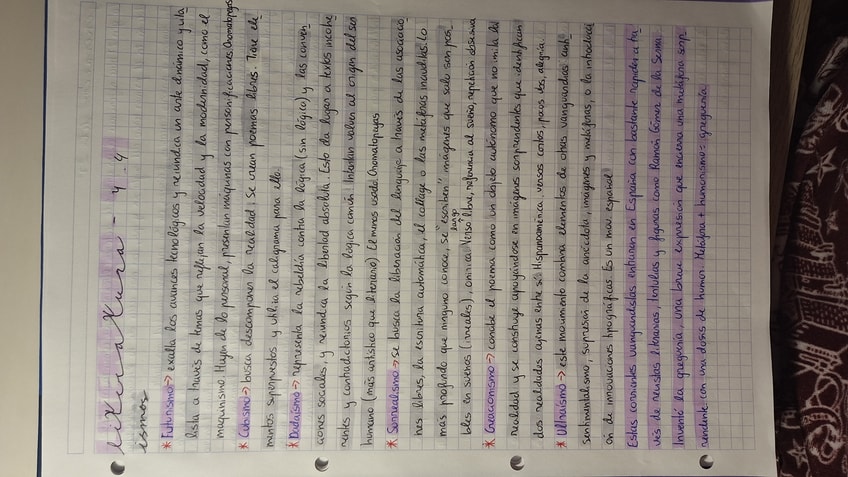 literatura - 4.4
ismos
* Futurismo → exalta los avances tecnológicos y reivindica un arte dinámico y vita
lista a través de temas que reflejan la velocidad y la modernidad, como el
maquinismo. Huyen de lo personal, presentan máquinas con personificaciones Onomatopeyas
* Cubismo → busca descomponer la realidad. Se crean poemas libres. Trae ele
mentos superpuestos y utiliza el caligrama para ello.
* Dadaísmo → representa la rebeldía contra la lógica (sin lógica) y las conven
ciones sociales, y reivindica la libertad absoluta. Esto da lugar a textos incohe
rentes y contradictorios según la lógica común. Intentan volver al origen del ser
humano (más artístico que literario) El menos usado Onomatopeyas
* Surrealismo → se busca la liberación del lenguaje a través de las asociacio
nes libres, la escritura automática, el collage o las metáforas inauditas. Lo
más profundo que ninguno conoce, se escriben imágenes que solo son posi
bles en sueños (irreales), onírica. Verso libre, largo referencia al sueño, repetición obsesiva
* Creacionismo → concibe el poema como un objeto autónomo que no imita la
realidad y se construye apoyándose en imágenes sorprendentes que identifican
dos realidades lejanas entre sí. Hispanoamérica versos cortos, pocos tes, alegría
* Ultraísmo → este movimiento combina elementos de otras vanguardias: anti
sentimentalismo, supresión de la anécdota, imágenes y metáforas, o la introducci
ón de innovaciones tipográficas. Es un mov. español
Estas corrientes vanguardistas entraron en España con bastante rapidez a tra
vés de revistas literarias, tertulias y figuras como Ramón Gómez de la Serna.
Inventó la greguería, una breve expresión que encierra una metáfora sorp
rendente con una dosis de humor. Metáfora + humorismo = greguería.